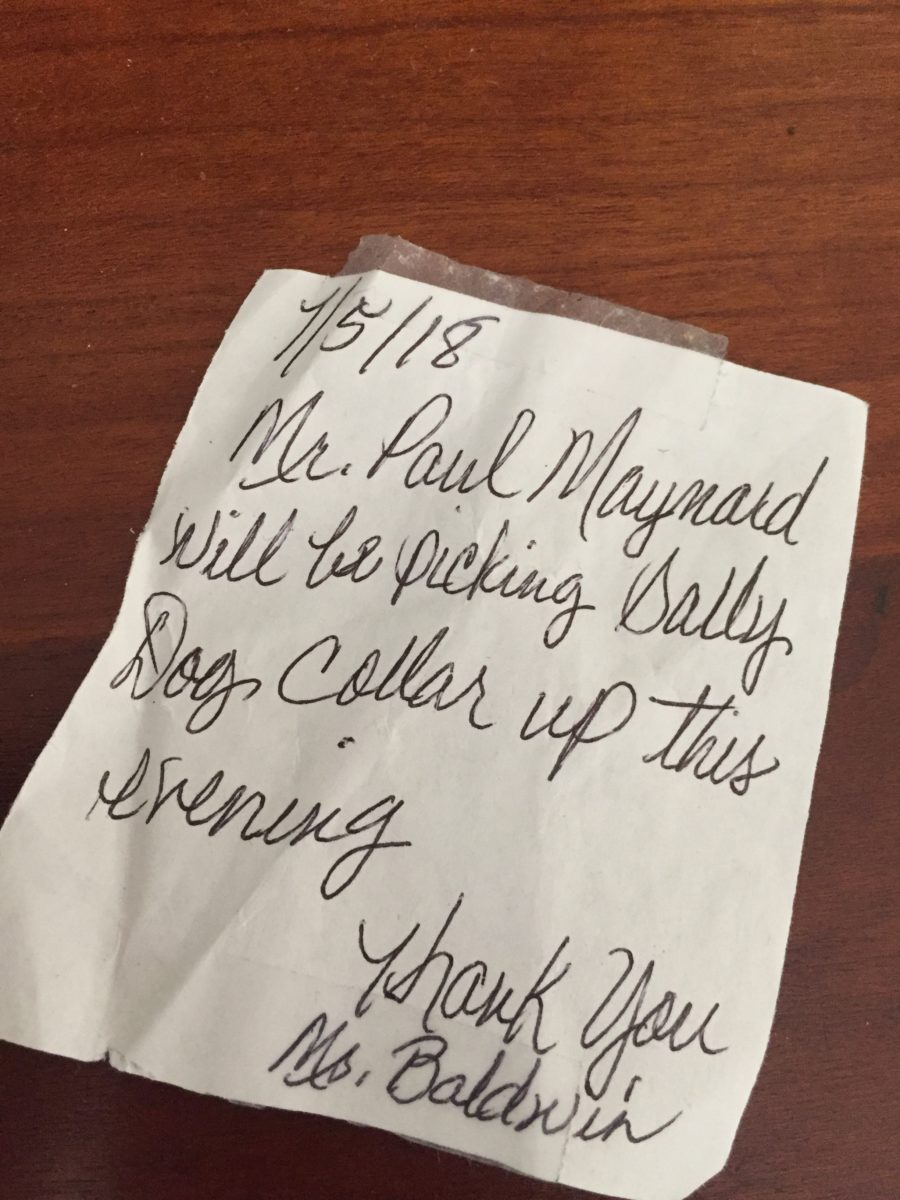 7/5/18
Mr. Paul Maynard
will be picking Sally
Dog Collar up this
evening
Thank You
Ms. Baldwin